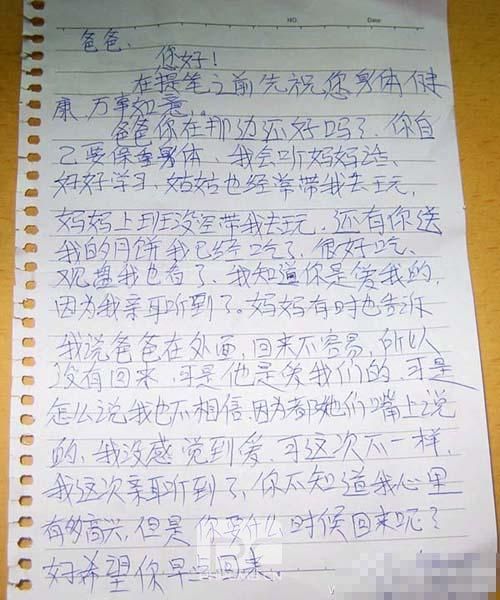 NO.
Date
爸爸、
您好！
在提笔之前先祝您身体健
康万事如意..
爸爸你在那边还好吗？你自
己要保重身体、我会听妈妈话、
好好学习，姑姑也经常带我去玩，
妈妈上班没空带我去玩．还有你送
我的月饼我已经吃了，很好吃、
观盘我也看了、我知道你是爱我的，
因为我亲耳听到了。妈妈有时也告诉
我说爸爸在外面，回来不容易，所以
没有回来．可是他是爱我们的．可是
怎么说我也不相信．因为都她们嘴上说
的．我没感觉到爱．可这次不一样．
我这次亲耳听到了，你不知道我心里
有多高兴，但是你要什么时候回来呢？
好希望你早点回来。